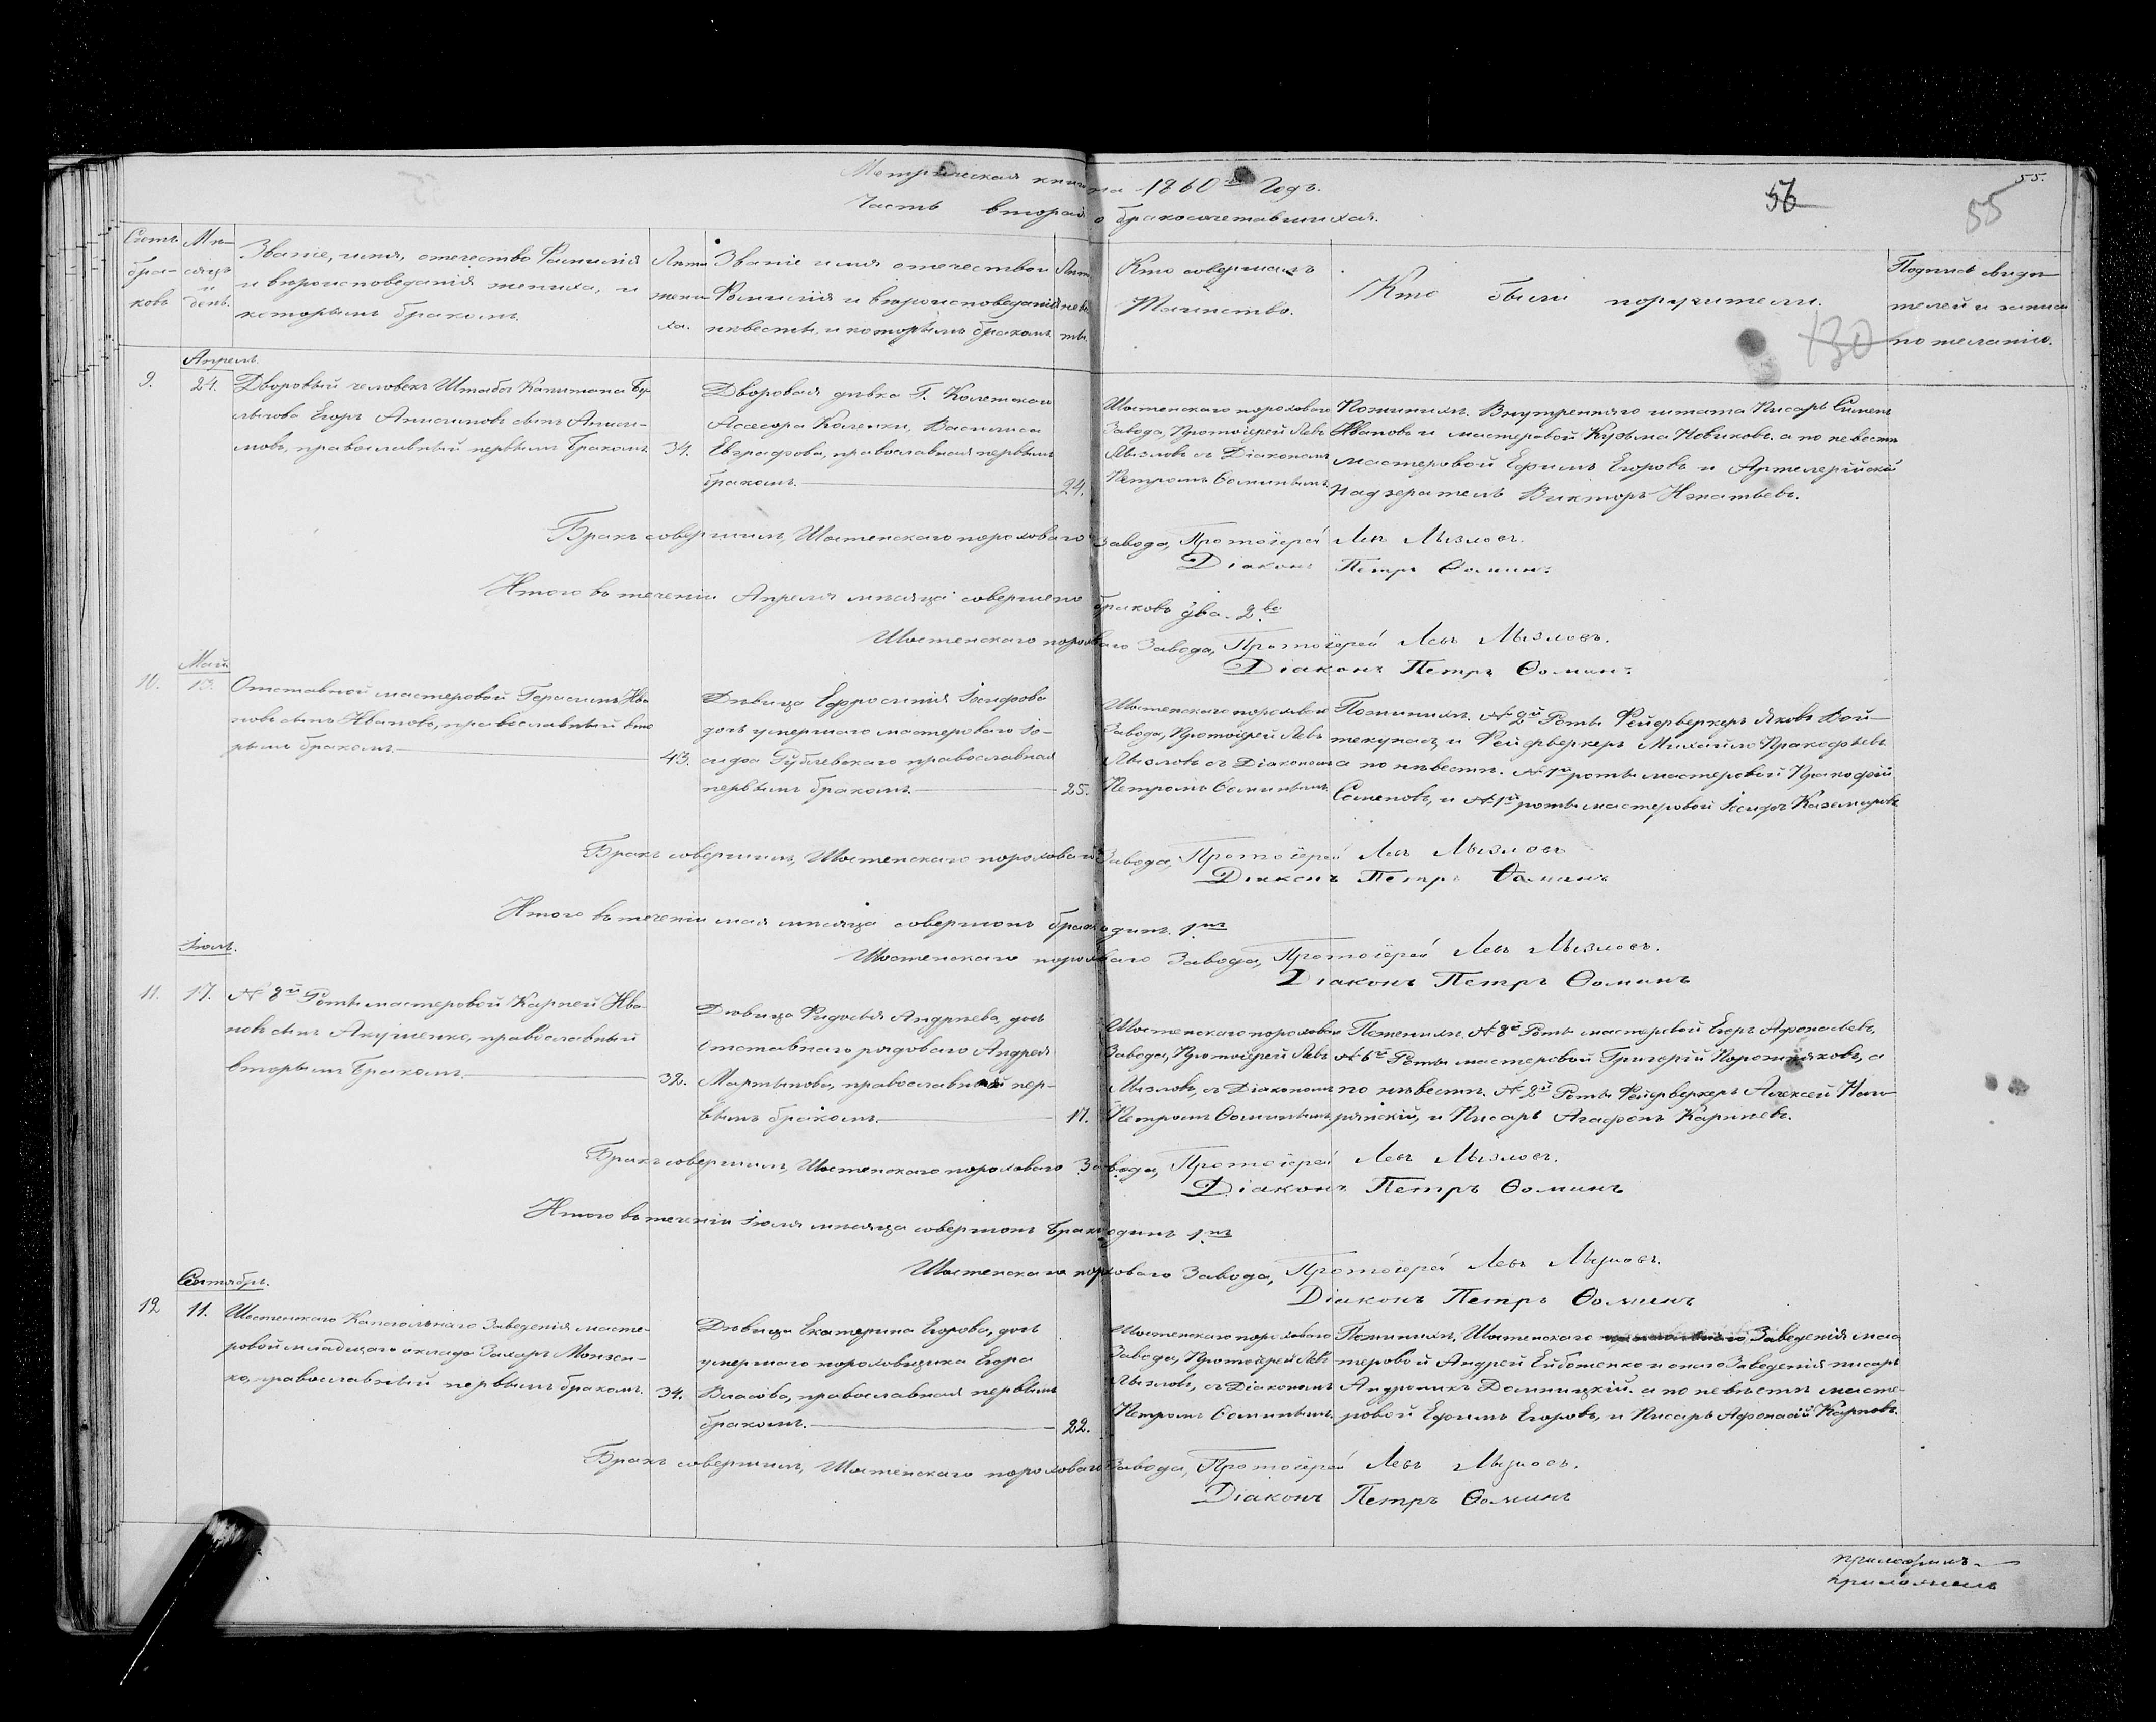 Метрическая книга 1860го Годъ.
Часть вторая о бракосочетавшихся.
56
55
55.
Счетъ браковъ
Мѣсяцъ и день.
Званіе, имя, отечество Фамилія
и вѣроисповеданія жениха, и
которымъ бракомъ.
Лѣта жениха.
Званіе имя отечество и
Фамилія и вѣроисповеданія
невесты и которымъ бракомъ
Кто совершалъ
Таинство.
Кто были поручители.
130
Подпись свиде
телей и записи
по желанію.
Апрель.
9. 24. Дворовый человекъ Штабсъ Капитана
Егоръ Анисимовъ сынъ Аниси-
мовъ, православный первымъ бракомъ. 34.
Дворовая дѣвка Г. Колежского
Асесора Коленки, Василиса
Евграфова, православная первымъ
бракомъ. 24.
Шостенскаго пороховаго
Завода, Протоіерей Левъ
Мызловъ съ Діакономъ
Петромъ Ѳоминымъ
По женихѣ. Внутренняго штата Писарь Семенъ
Ивановъ и мастеровой Кузьма Новиковъ. а по невестѣ
мастеровой Ефимъ Егоровъ и Артелерійскій
надзератель Викторъ Игнатьевъ.
Бракъ совершилъ, Шостенскаго пороховаго Завода, Протоіерей Левъ Мызловъ.
Діаконъ Петръ Ѳоминъ
Итого въ теченіи Апреля месяца совершено браковъ два. 2ва.
Шостенскаго пороховаго Завода, Протоіерей Левъ Мызловъ.
Діаконъ Петръ Ѳоминъ
Май
10. 13. Отставной мастеровой Герасимъ Ива
новъ сынъ Ивановъ, православный вто
рымъ бракомъ. 43.
Дѣвица Ефросинія Іосифова
дочь умершаго мастероваго Іо-
сифа Гублевскаго православная
первымъ бракомъ. 25.
Шостенскаго пороховаго
Завода, Протоіерей Левъ
Мызловъ съ Діакономъ
Петромъ Ѳоминымъ
По женихѣ. № 2й Роты Фейерверкеръ Яковъ Вой-
и Фейерверкеръ Михайло Пракофьевъ
а по невѣстѣ. № 1й роты мастеровой Пракофій
Семеновъ, и № 1й роты мастеровой Іосифъ
Бракъ совершилъ, Шостенскаго пороховаго Завода, Протоіерей Левъ Мызловъ
Діаконъ Петръ Ѳоминъ
Итого въ теченіи мая месяца совершонъ бракъ одинъ. 1нъ
Шостенскаго пороховаго Завода, Протоіерей Левъ Мызловъ.
Діаконъ Петръ Ѳоминъ
Іюль.
11. 17. № 8й Роты мастеровой Карпей Ива-
новъ сынъ православный
вторымъ бракомъ. 32.
Дѣвица Фидосья Андрѣева, дочь
отставнаго рядоваго Андрея
Мартынова, православной пер-
вымъ бракомъ. 17.
Шостенскаго пороховаго
Завода, Протоіерей Левъ
Мызловъ, съ Діакономъ
Петромъ Ѳоминымъ
По женихѣ. № 8й Роты мастеровой Егоръ Афонасьевъ,
№ 6й Роты мастеровой Григорій а
по невѣстѣ. № 2й Роты Фейерверкеръ Алексей
и Писарь Агафонъ Карпѣевъ.
Бракъ совершилъ, Шостенскаго пороховаго Завода, Протоіерей Левъ Мызловъ.
Діаконъ Петръ Ѳоминъ
Итого въ теченіи іюля месяца совершонъ бракъ одинъ 1нъ
Шостенскаго пороховаго Завода, Протоіерей Левъ Мызловъ.
Діаконъ Петръ Ѳоминъ
Сентябрь.
12 11. Шостенскаго Капсюльнаго Заведенія масте-
ровой младшаго оклада Захаръ
православный первымъ бракомъ. 34.
Дѣвица Екатерина Егорова, дочь
умершаго пороховщика Егора
Власова, православная первымъ
бракомъ. 22.
Шостенскаго пороховаго
Завода, Протоіерей Левъ
Мызловъ, съ Діакономъ
Петромъ Ѳоминымъ.
По женихѣ, Шостенскаго Заведенія мас
теровой Андрей и онаго Заведенія писарь
Андроникъ а по невѣстѣ масте-
ровой Ефимъ Егоровъ, и Писарь Афонасій Карповъ.
Бракъ совершилъ, Шостенскаго пороховаго Завода, Протоіерей Левъ Мызловъ.
Діаконъ Петръ Ѳоминъ
приложилъ